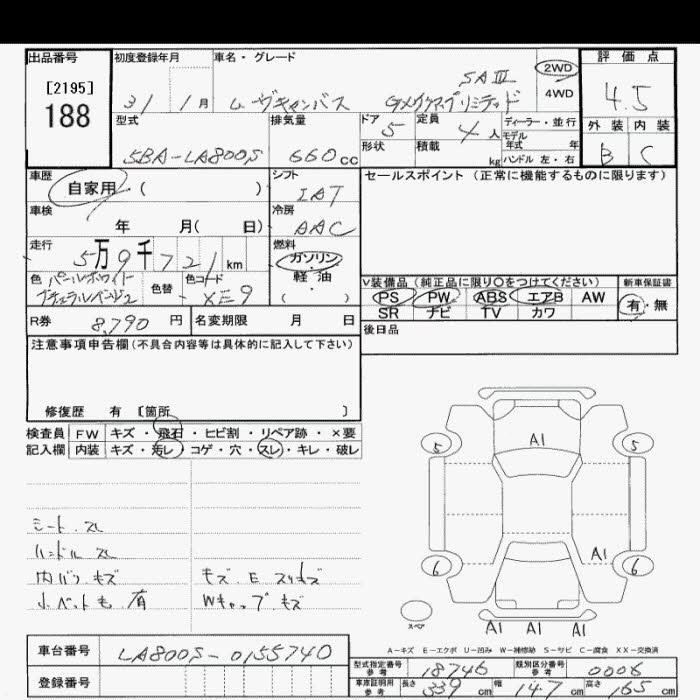 出品番号
[2195]
188
初度登録年月
31 / 1月
車名・グレード
SAⅢ
ムーヴキャンバス
2WD
4WD
評価点
4.5
外装 内装
B C
型式
5BA-LA800S
排気量
660cc
ドア 5
形状
定員 4人
積載 kg
ディーラー・並行
モデル年式 年
ハンドル 左・右
車歴
自家用 ( )
シフト
IAT
車検
年 月( 日)
冷房
AAC
走行
5万9千721km
燃料
ガソリン・軽油
( )
色 パールホワイト
色替
色コード
XE9
セールスポイント (正常に機能するものに限ります)
V装備品 (純正品に限り○をつけてください)
PS PW ABS エアB AW
SR ナビ TV カワ
新車保証書
有・無
R券 8,790 円
名変期限 月 日
後日品
注意事項申告欄(不具合内容等は具体的に記入して下さい)
修復歴 有 [箇所 ]
検査員 FW キズ・飛石・ヒビ割・リペア跡・×要
記入欄 内装 キズ・汚レ・コゲ・穴・スレ・キレ・破レ
シート スレ
ハンドル スレ
内バリ キズ
小 ペット毛 有
キズ E スリキズ
Wキャップ キズ
A1
5 5
A1
6 6
スペア
A1 A1 A1
A-キズ E-エクボ U-凹み W-補修跡 S-サビ C-腐食 XX-交換済
車台番号
LA800S-0155740
登録番号
型式指定番号 参考 18746
類別区分番号 参考 0006
車庫証明用 参考 長さ 339cm 幅 147cm 高さ 165cm